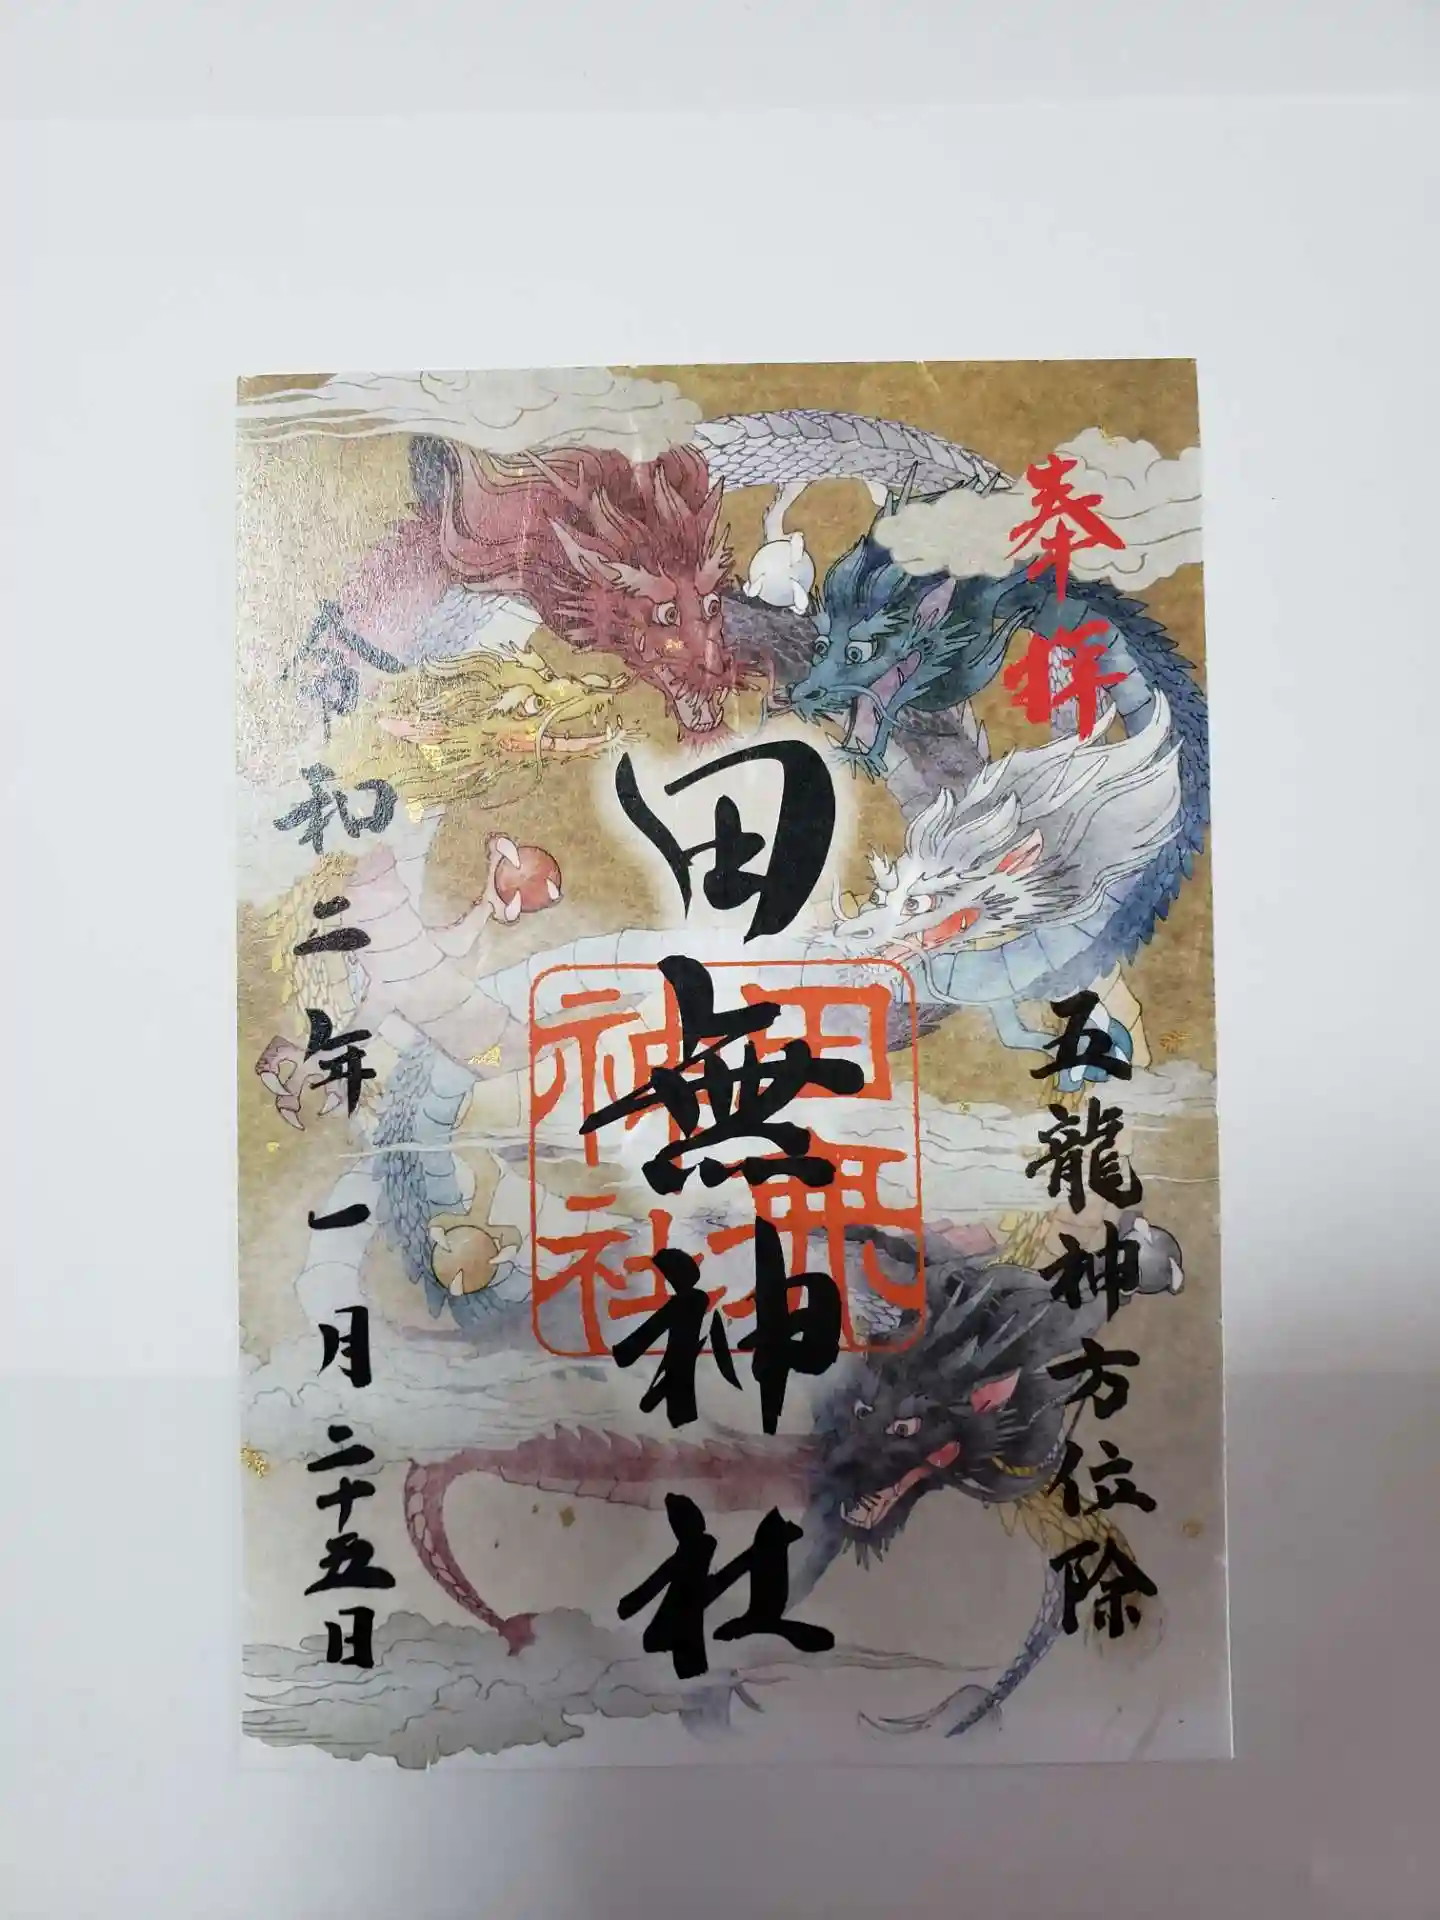 奉拝
五龍神方位除
田無神社
田無神社
令和二年一月二十五日